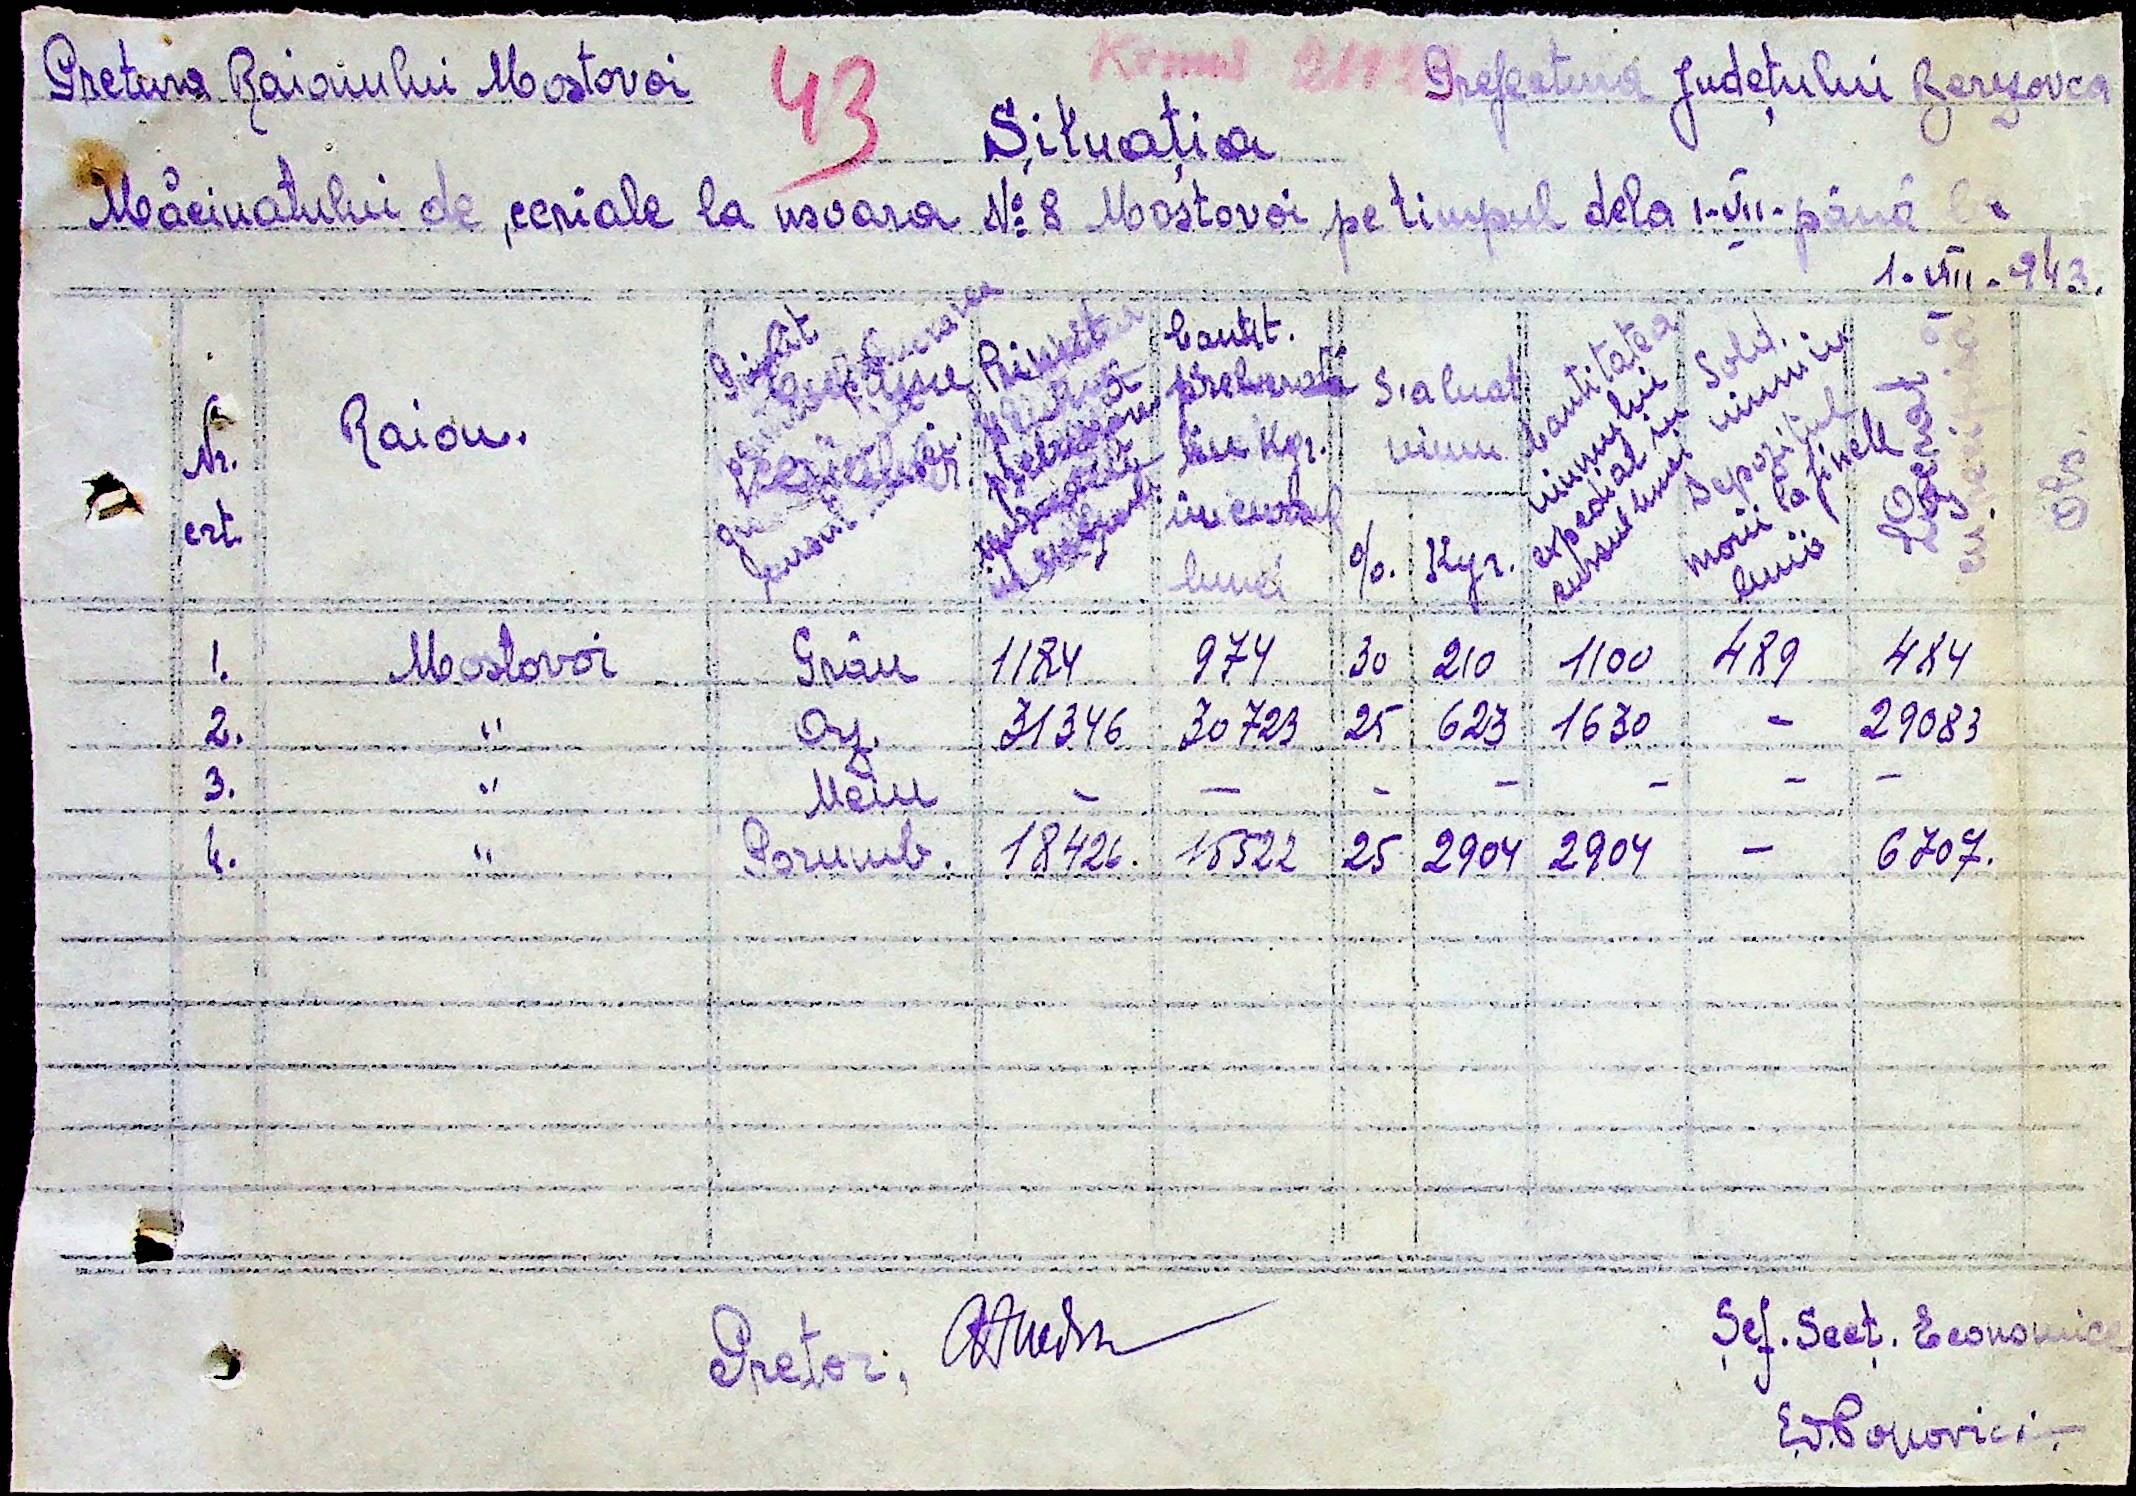 Pretura Raionului Mostovoi
43
Prefectura Județului Berezovca
Șituația
Măcinatului de ceriale la moara № 8 Mostovoi pe timpul dela 1-VII- până la
1-VIII-943.
Nr. crt.
Raion.
Primit
Cantit. prelucrată în Kgr. în cursul lună
S'a luat uium
%. Kgr.
Cantitatea uiumului expediat în cursul lunii
Sold. uiumului Depozitul morii la finele lunii
Obs.
1. Mostovoi Grâu 1184 974 30 210 1100 489 484
2. " Orz. 31346 30723 25 623 1630 - 29083
3. " Meiu - - - - - - -
4. " Porumb. 18426. 15522 25 2904 2904 - 6707.
Pretor,
Șef. Secț. Economice
E.D. Popovici